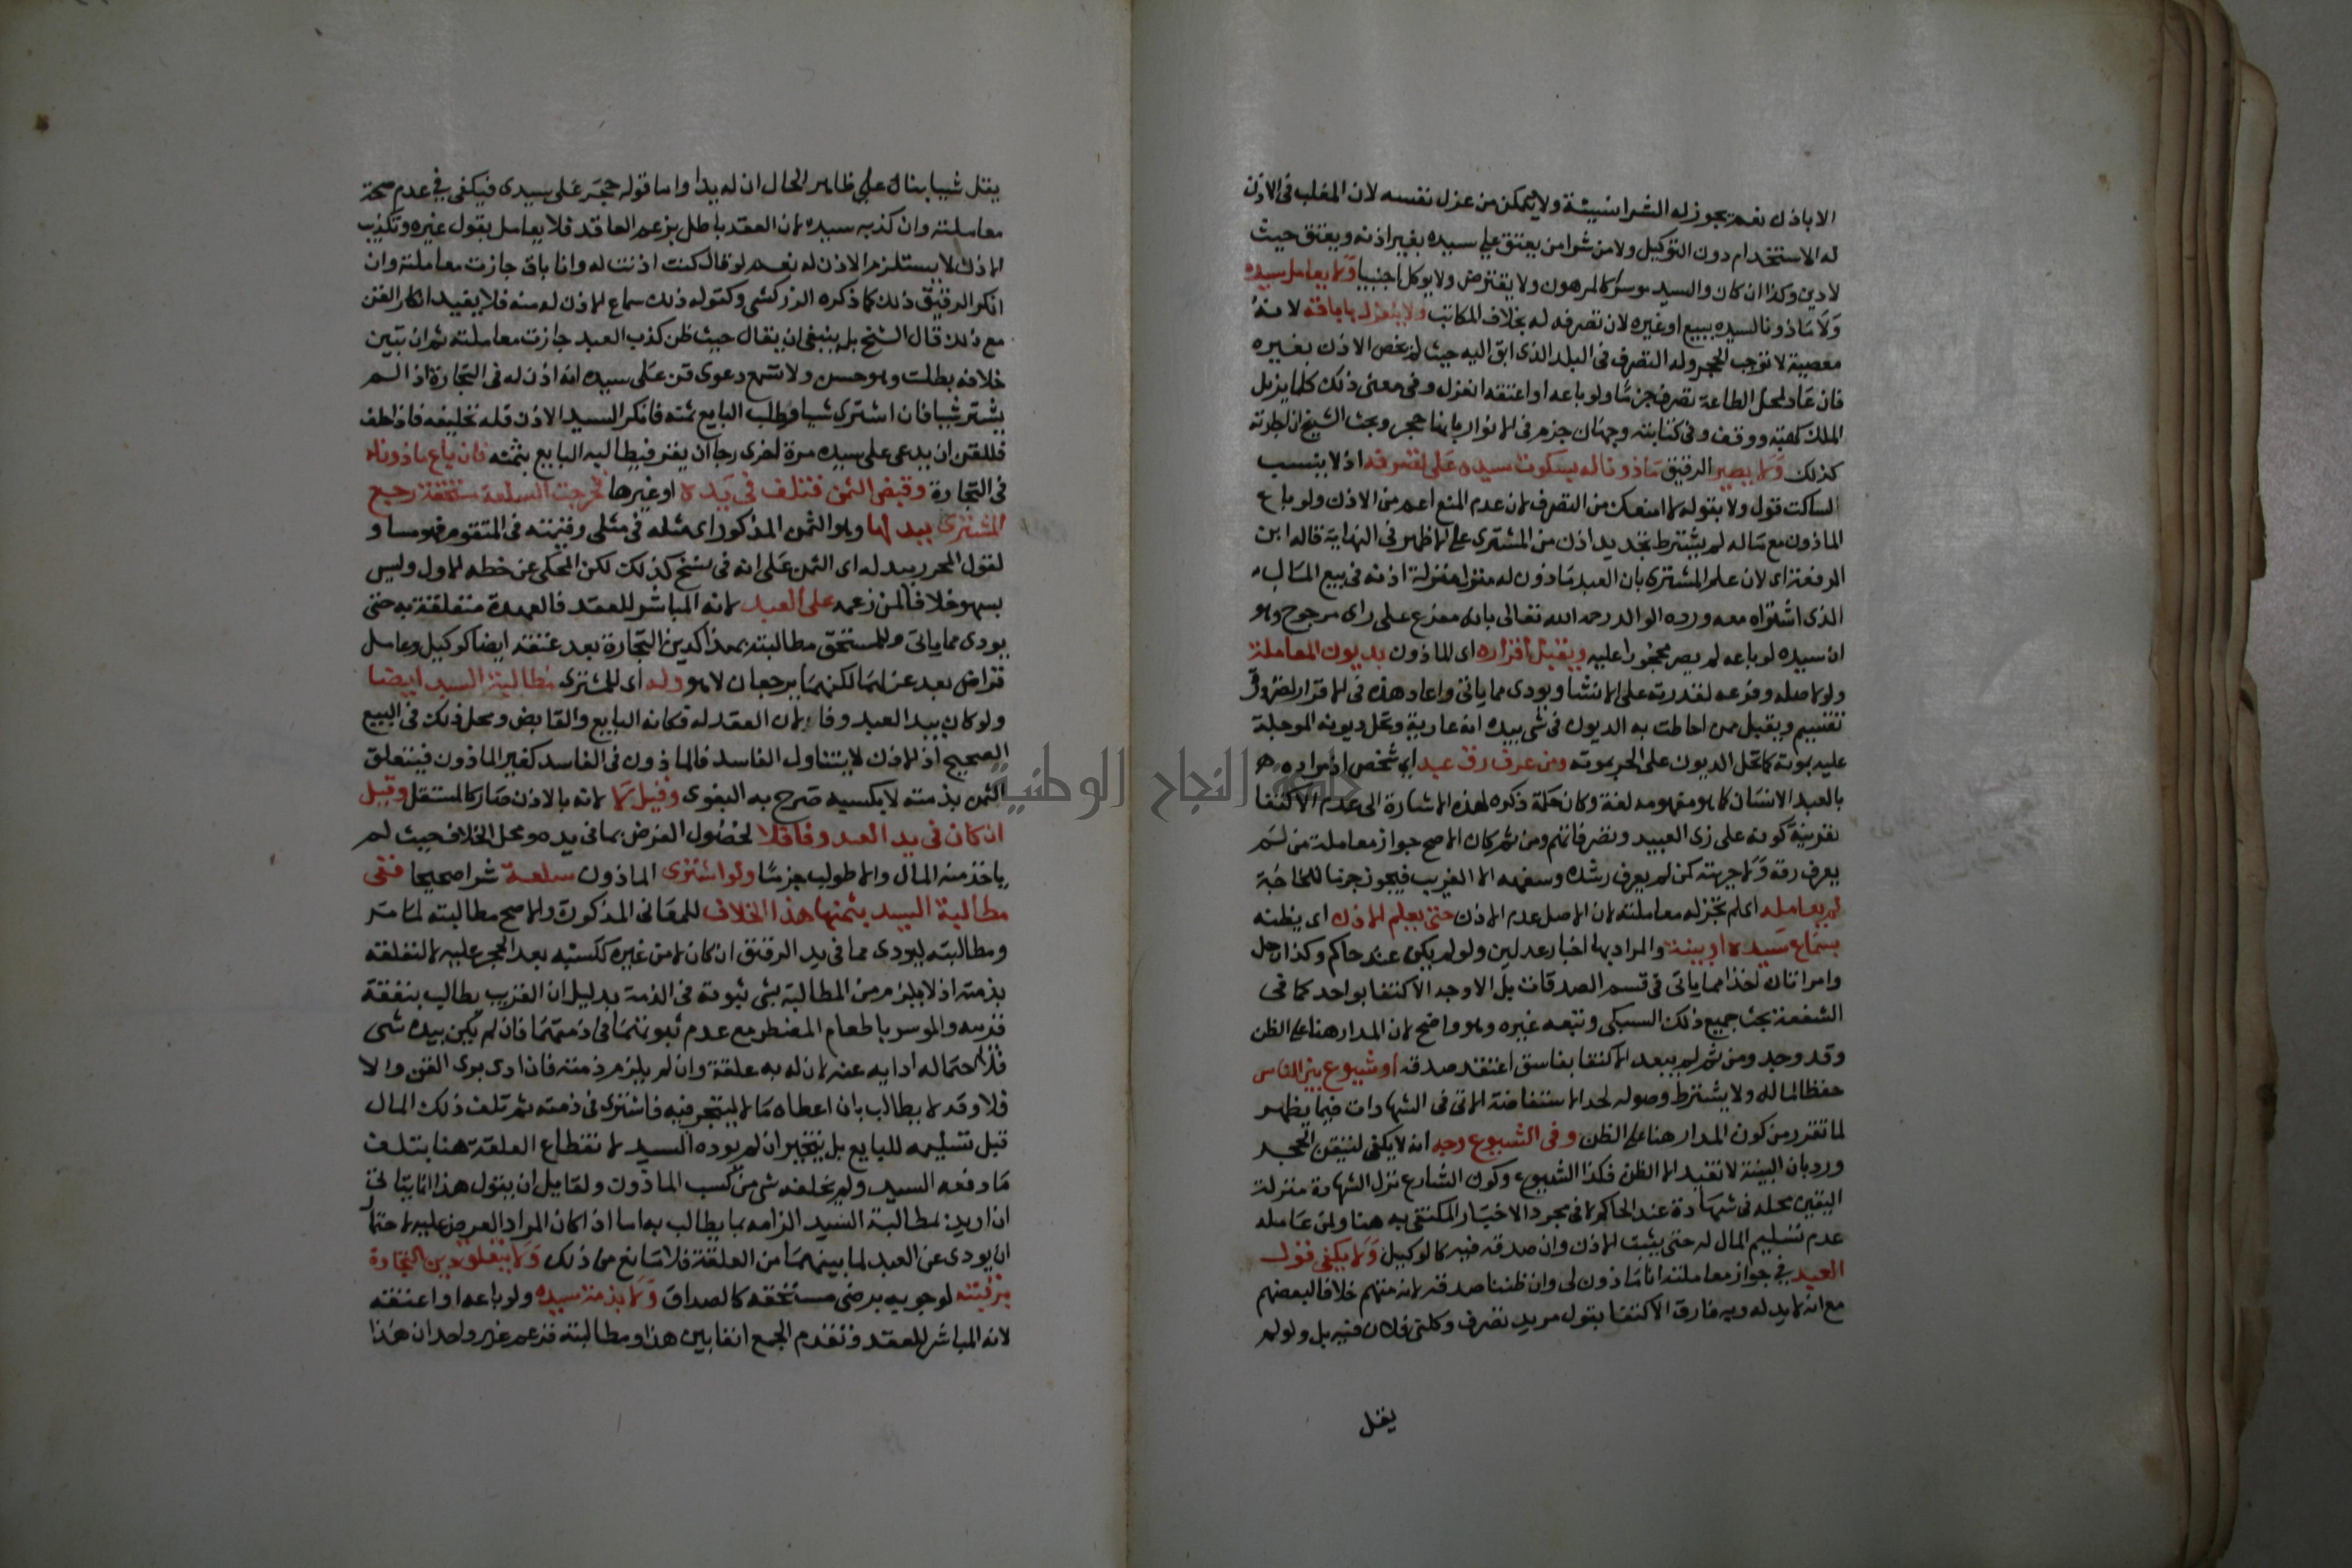 الا باذن نعم يجوز له الشرا نسيئة ولا يتمكن من عزل نفسه لان المغلب في الاذن
له الاستخدام دون التوكيل ولا من شرا من يعتق علي سيده بغير اذنه ويعتق حيث
لا دين وكذا ان كان والسيد موسر كالمرهون ولا يقترض ولا يوكل اجنبيا ولا يعامل سيده
ولا ماذونا لسيده ببيع او غيره لان تصرفه له بخلاف المكاتب ولا ينعزل باباقه لانه
معصية لا توجب الحجر وله التصرف في البلد الذي ابق اليه حيث لم يخص الاذن بغيره
فان عاد لمحل الطاعة تصرف جزما ولو باعه او اعتقه انعزل وفي معنى ذلك كلما يزيل
الملك كهبة ووقف وفي كتابته وجهان جزم في الانوار بانها حجر وبحث الشيخ ان اجارته
كذلك ولا يصير الرقيق ماذونا له بسكوت سيده على تصرفه اذ لا ينسب
الساكت قول ولا بقوله لا امنعك من التصرف لان عدم المنع اعم من الاذن ولو باع
الماذون مع ماله لم يشترط تجديد اذن من المشتري علي الاظهر في النهاية قاله ابن
الرفعة اي لان علم المشتري بان العبد ماذون له منزل منزلة اذنه في بيع المال
الذي اشتراه معه ورده الوالد رحمه الله تعالى بانه مفرع على راى مرجوح وهو
ان سيده لو باعه لم يصر محجورا عليه ويقبل اقراره اى الماذون بديون المعاملة
ولو لاصله وفرعه لقدرته على الانشا ويودى مما ياتي واعاد هذه في الاقرار لضرورة
تقسيم ويقبل ممن احاطت به الديون في شي بيده انه عارية وتحل ديونه الموجلة
عليه بموته كما تحل الديون على الحر بموته ومن عرف رق عبد اى شخص اذ مراده
بالعبد الانسان كما هو مفهومه لغة وكان حكمة ذكره لهذه الاشارة الى عدم الاكتفا
بقرينة كونه على زى العبيد وتصرفاتهم ومن ثم كان الاصح جواز معاملة من لم
يعرف رقه ولا حريته كمن لم يعرف رشده وسفهه الا الغريب فيجوز جزما للحاجة
لم يعامله اى لم تجز له معاملته لان الاصل عدم الاذن حتى يعلم الاذن اى يظنه
بسماع سيده او بينة والمراد بها اخبار عدلين ولو لم يكن عند حاكم وكذا رجل
وامراتان اخذا مما ياتى في قسم الصدقات بل الاوجه الاكتفا بواحد كما في
الشفعة بحث جميع ذلك السبكى وتبعه غيره وهو واضح لان المدار هنا على الظن
وقد وجد ومن ثم لم يبعد الاكتفا بفاسق اعتقد صدقه او شيوع بين الناس
حفظا لماله ولا يشترط وصوله لحد الاستفاضة الاتى في الشهادات فيما يظهر
لما تقرر من كون المدار هنا على الظن وفي الشيوع وجه انه لا يكفى لتيقن الحجر
ورد بان البينة لا تفيد الا الظن فكذا الشيوع وكون الشارع نزل الشهادة منزلة
اليقين محله في شهادة عند الحاكم لا في مجرد الاخبار المكتفى به هنا ولمن عامله
عدم تسليم المال له حتى يثبت الاذن وان صدقه فيه كالوكيل ولا يكفى قول
العبد في جواز معاملته انا ماذون لى وان ظننا صدقه لانه متهم خلافا لبعضهم
مع انه لا يد له وبه فارق الاكتفا بقول مريد تصرف وكلنى فلان فيه بل ولو لم
يقل
يقل شيا بناء على ظاهر الحال ان له يدا واما قوله حجر على سيدى فيكفى في عدم صحة
معاملته وان كذبه سيده لان العقد باطل بزعم العاقد فلا يعامل بقول غيره وتكذيب
الاذن لا يستلزم الاذن له نعم لو قال كنت اذنت له وانا باق جازت معاملته وان
انكر الرقيق ذلك كما ذكره الزركشي وكقوله ذلك سماع الاذن له منه فلا يفيد انكار القن
مع ذلك قال الشيخ بل ينبغى ان يقال حيث ظن كذب العبد جازت معاملته ثم ان تبين
خلافه بطلت وهو حسن ولا تسمع دعوى قن على سيده انه اذن له في التجارة اذ الم
يشتر شيا فان اشترى شيا وطلب البايع ثمنه فانكر السيد الاذن فله تحليفه فاذا حلف
فللقن ان يدعى على سيده مرة اخرى رجا ان يقر فيطاليه البايع بثمنه فان باع ماذون له
في التجارة وقبض الثمن فتلف في يده او غيرها فخرجت السلعة مستحقة رجع
المشتري ببدلها وهو الثمن المذكور اى مثله في مثلى وقيمته في المتقوم فهو مساو
لقول المحرر ببدله اى الثمن على انه في نسخ كذلك لكن المحكى عن خطه الاول وليس
بسهو خلافا لمن زعمه على العبد لانه المباشر للعقد فالعهدة متعلقة به حتى
يودى مما ياتى وللمستحق مطالبته بهذا كدين التجارة بعد عتقه ايضا كوكيل وعامل
قراض بعد عزلهما لكنهما يرجعان لا هو وله اى للمشترى مطالبة السيد ايضا
ولو كان بيد العبد وفا لان العقد له فكانه البايع والقابض ومحل ذلك في البيع
الصحيح اذ الاذن لا يتناول الفاسد فالماذون في الفاسد كغير الماذون فيتعلق
الثمن بذمته لا بكسبه صرح به البغوى وقيل لا لانه بالاذن صار كالمستقل وقيل
ان كان في يد العبد وفا فلا لحصول الغرض بما في يده ومحل الخلاف حيث لم
ياخذ منه المال والا طولب جزما ولو اشترى الماذون سلعة شرا صحيحا ففي
مطالبة السيد بثمنها هذا الخلاف للمعانى المذكورة والاصح مطالبته لما مر
ومطالبته ليودى مما في يد الرقيق ان كان لا من غيره ككسبه بعد الحجر عليه لا لتعلقه
بذمته اذ لا يلزم من المطالبة بشى ثبوته في الذمة بدليل ان القريب يطالب بنفقة
قريبه والموسر باطعام المضطر مع عدم ثبوتهما في ذمتهما فان لم يكن بيده شى
فلاحتماله ادايه عنه لان له به علقة وان لم يلزم ذمته فان ادى برى القن والا
فلا وقد لا يطالب بان اعطاه مالا ليتجر فيه فاشترى في ذمته ثم تلف ذلك المال
قبل تسليمه للبايع بل يتخير ان لم يوده السيد لانقطاع العلقة هنا بتلف
ما دفعه السيد ولم يخلفه شى من كسب الماذون ولقايل ان يقول هذا انما يتاتى
ان اريد لمطالبة السيد الزامه بما يطالب به اما اذا كان المراد العرض عليه لاحتمال
ان يودى عن العبد لما بينهما من العلقة فلا مانع من ذلك ولا يتعلق دين التجارة
برقبته لوجوبه برضى مستحقه كالصداق ولا بذمة سيده ولو باعه او اعتقه
لانه المباشر للعقد وتقدم الجمع انفا بين هذا ومطالبته فزعم غير واحد ان هذا
جامعة النجاح الوطنية